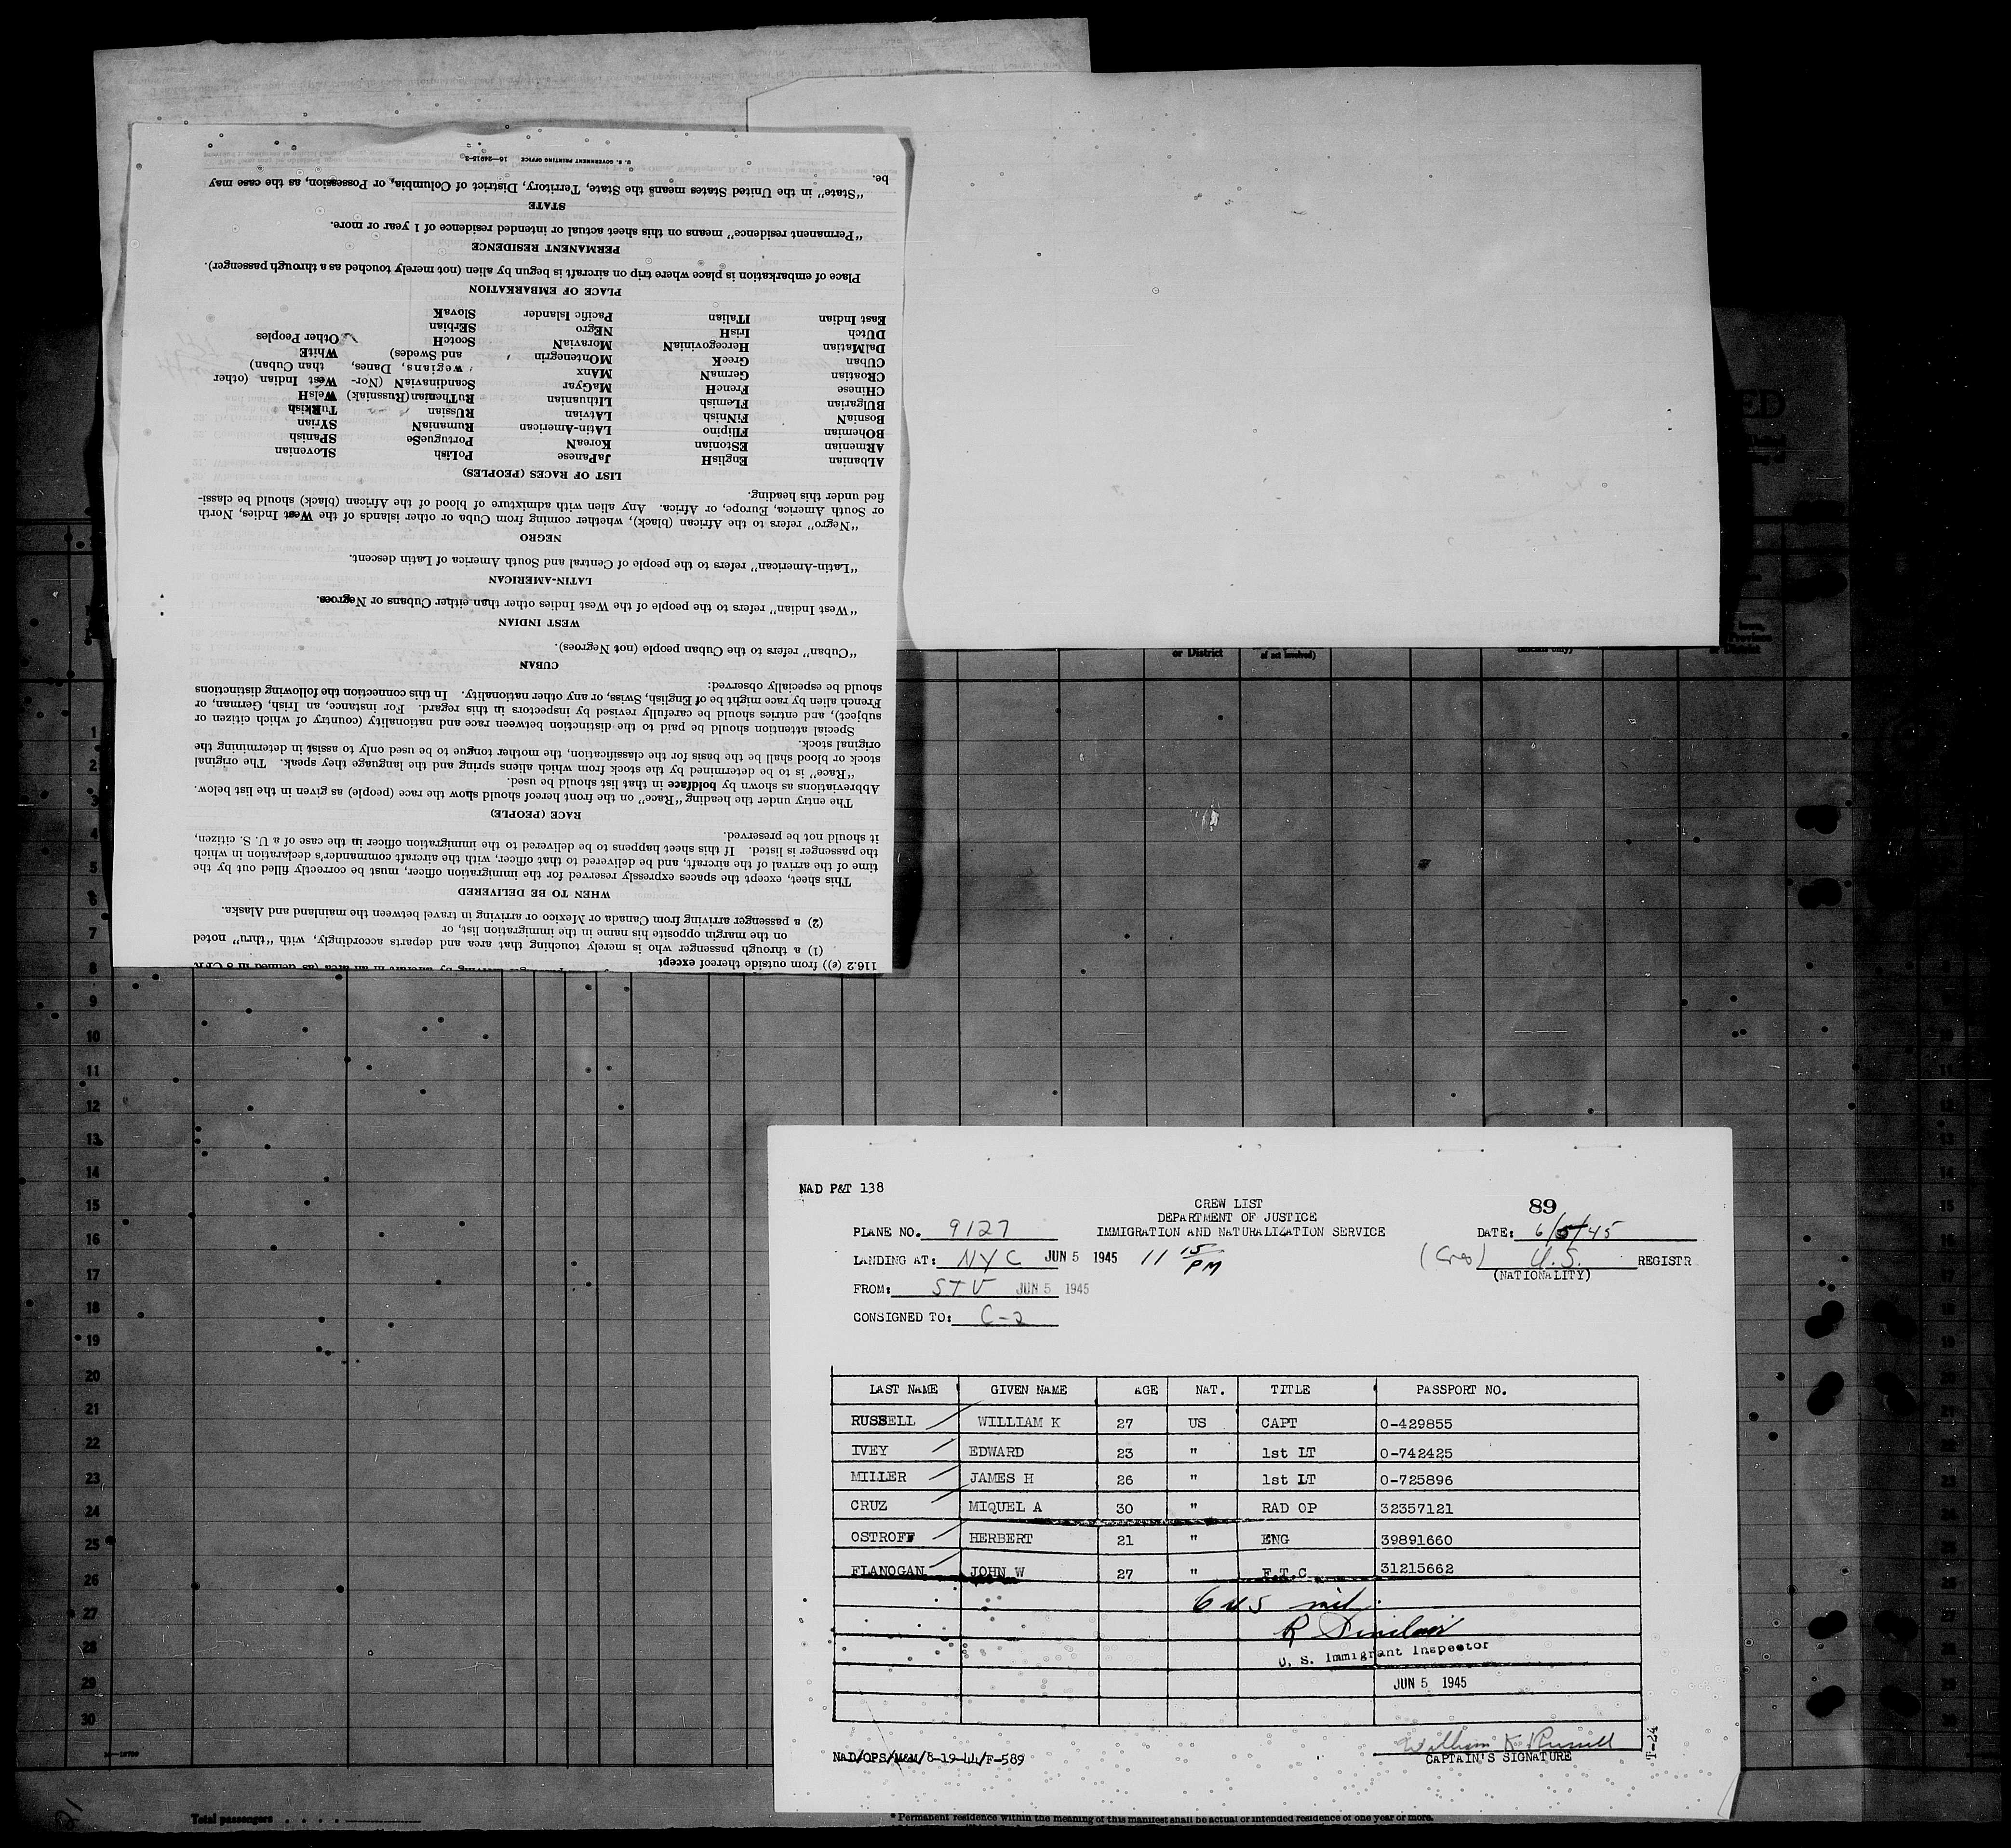 116.2 (e)) from outside thereof except
(1) a through passenger who is merely touching that area and departs accordingly, with “thru” noted
on the margin opposite his name in the immigration list, or
(2) a passenger arriving from Canada or Mexico or arriving in travel between the mainland and Alaska.
WHEN TO BE DELIVERED
This sheet, except the spaces expressly reserved for the immigration officer, must be correctly filled out by the
time of the arrival of the aircraft, and be delivered to that officer, with the aircraft commander's declaration in which
the passenger is listed. If this sheet happens to be delivered to the immigration officer in the case of a U. S. citizen,
it should not be preserved.
RACE (PEOPLE)
The entry under the heading “Race” on the front hereof should show the race (people) as given in the list below.
Abbreviations as shown by boldface in that list should be used.
“Race” is to be determined by the stock from which aliens spring and the language they speak. The original
stock or blood shall be the basis for the classification, the mother tongue to be used only to assist in determining the
original stock.
Special attention should be paid to the distinction between race and nationality (country of which citizen or
subject), and entries should be carefully revised by inspectors in this regard. For instance, an Irish, German, or
French alien by race might be of English, Swiss, or any other nationality. In this connection the following distinctions
should be especially observed:
CUBAN
“Cuban” refers to the Cuban people (not Negroes).
WEST INDIAN
“West Indian” refers to the people of the West Indies other than either Cubans or Negroes.
LATIN-AMERICAN
“Latin-American” refers to the people of Central and South America of Latin descent.
NEGRO
“Negro” refers to the African (black), whether coming from Cuba or other islands of the West Indies, North
or South America, Europe, or Africa. Any alien with admixture of blood of the African (black) should be classi-
fied under this heading.
LIST OF RACES (PEOPLES)
ALbanian EnglisH JaPanese PoLish SLOvenian
ARmenian EStonian KoreaN PortugueSe SPanish
BOhemian FIlipino LAtin-American RumaniaN SYrian
BosniaN FiNnish LAtvian RUssian TuRkish
BUlgarian FLemish LIthuanian RuThenian (Russniak) WelsH
CHinese FrencH MaGyar ScandinaviaN (Nor- West Indian (other
CRoatian GermaN MAnx wegians, Danes, than Cuban)
CUban GreeK MOntenegrin and Swedes) WhitE
DalMatian HercegoviniaN MoraviaN ScotcH Other Peoples
DUtch IrisH NEgro SErbian
East Indian ITalian Pacific Islander SlovaK
PLACE OF EMBARKATION
Place of embarkation is place where trip on aircraft is begun by alien (not merely touched as a through passenger).
PERMANENT RESIDENCE
“Permanent residence” means on this sheet actual or intended residence of 1 year or more.
STATE
“State” in the United States means the State, Territory, District of Columbia, or Possession, as the case may
be.
U. S. GOVERNMENT PRINTING OFFICE 16—24915-2
or District
of act involved)
or District
1
2
3
4
5
6
7
8
9
10
11
12
13
14
15
16
17
18
19
20
21
22
23
24
25
26
27
28
29
30
Total passengers
* Permanent residence within the meaning of this manifest shall be actual or intended residence of one year or more.
NAD P&T 138
CREW LIST
DEPARTMENT OF JUSTICE
IMMIGRATION AND NATURALIZATION SERVICE
89
PLANE NO. 9127
DATE: 6/5/45
LANDING AT: NYC JUN 5 1945 11 15 PM
U.S. REGISTR
(NATIONALITY)
FROM: STV JUN 5 1945
CONSIGNED TO: C-2
LAST NAME GIVEN NAME AGE NAT. TITLE PASSPORT NO.
RUSSELL WILLIAM K 27 US CAPT 0-429855
IVEY EDWARD 23 " 1st LT 0-742425
MILLER JAMES H 26 " 1st LT 0-725896
CRUZ MIQUEL A 30 " RAD OP 32357121
OSTROFF HERBERT 21 " ENG 39891660
FLANOGAN JOHN W 27 " F.T.C. 31215662
6 US mil.
R Sinclair
U. S. Immigrant Inspector
JUN 5 1945
William K Russell
CAPTAIN'S SIGNATURE
NAD/OPS/M&M/8-19-44/F-589
T-24